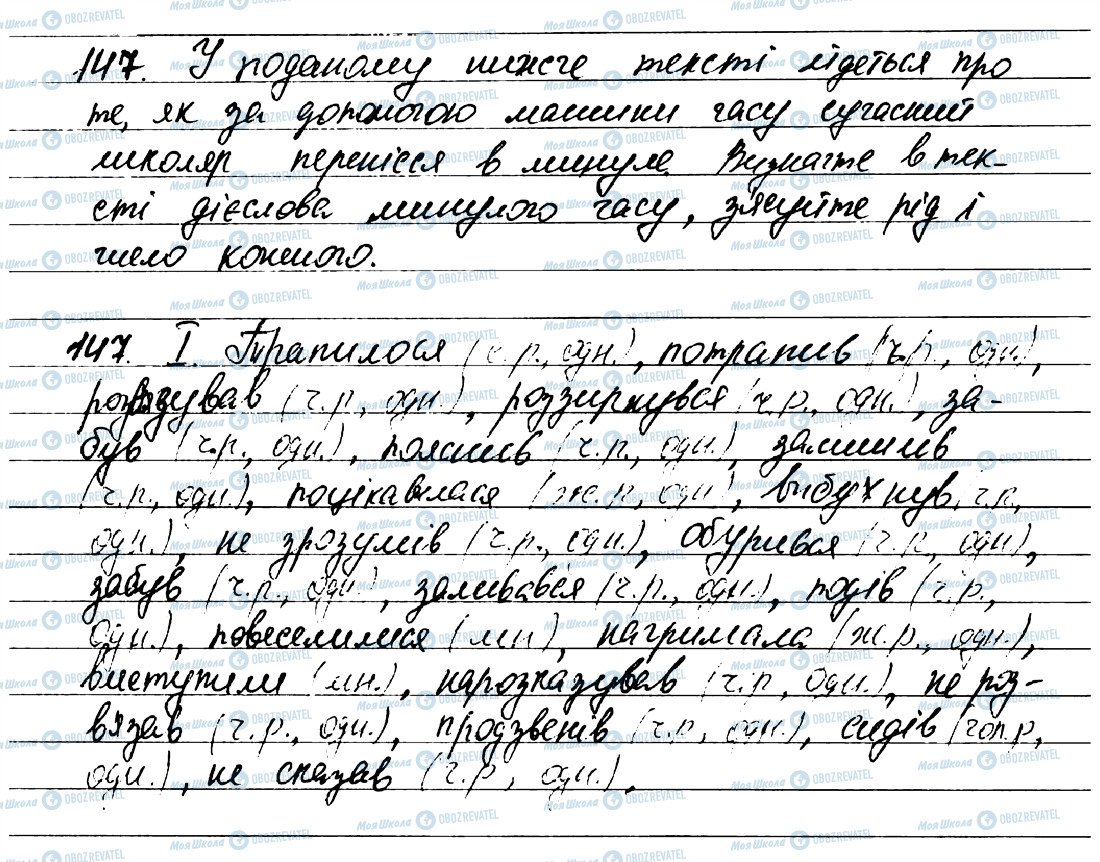 147. У поданому нижче тексті йдеться про
те, як за допомогою машини часу сучасний
школяр перенісся в минуле. Визначте в тек-
сті дієслова минулого часу, з'ясуйте рід і
число кожного.
147. I. Трапилося (с.р., одн.), потрапив (ч.р., одн.),
(ч.р., одн.), роззирнувся (ч.р., одн.), за-
був (ч.р., одн.), пояснив (ч.р., одн.), залишив
(ч.р., одн.), поцікавилася (ж.р., одн.), вибухнув (ч.р.,
одн.), не зрозумів (ч.р., одн.), обурився (ч.р., одн.),
забув (ч.р., одн.), заливався (ч.р., одн.), радів (ч.р.,
одн.), повеселилися (мн.), нагримала (ж.р., одн.),
виступили (мн.), нарозказував (ч.р., одн.), не роз-
в'язав (ч.р., одн.), продзвенів (ч.р., одн.), сидів
одн.), не сказав (ч.р., одн.).